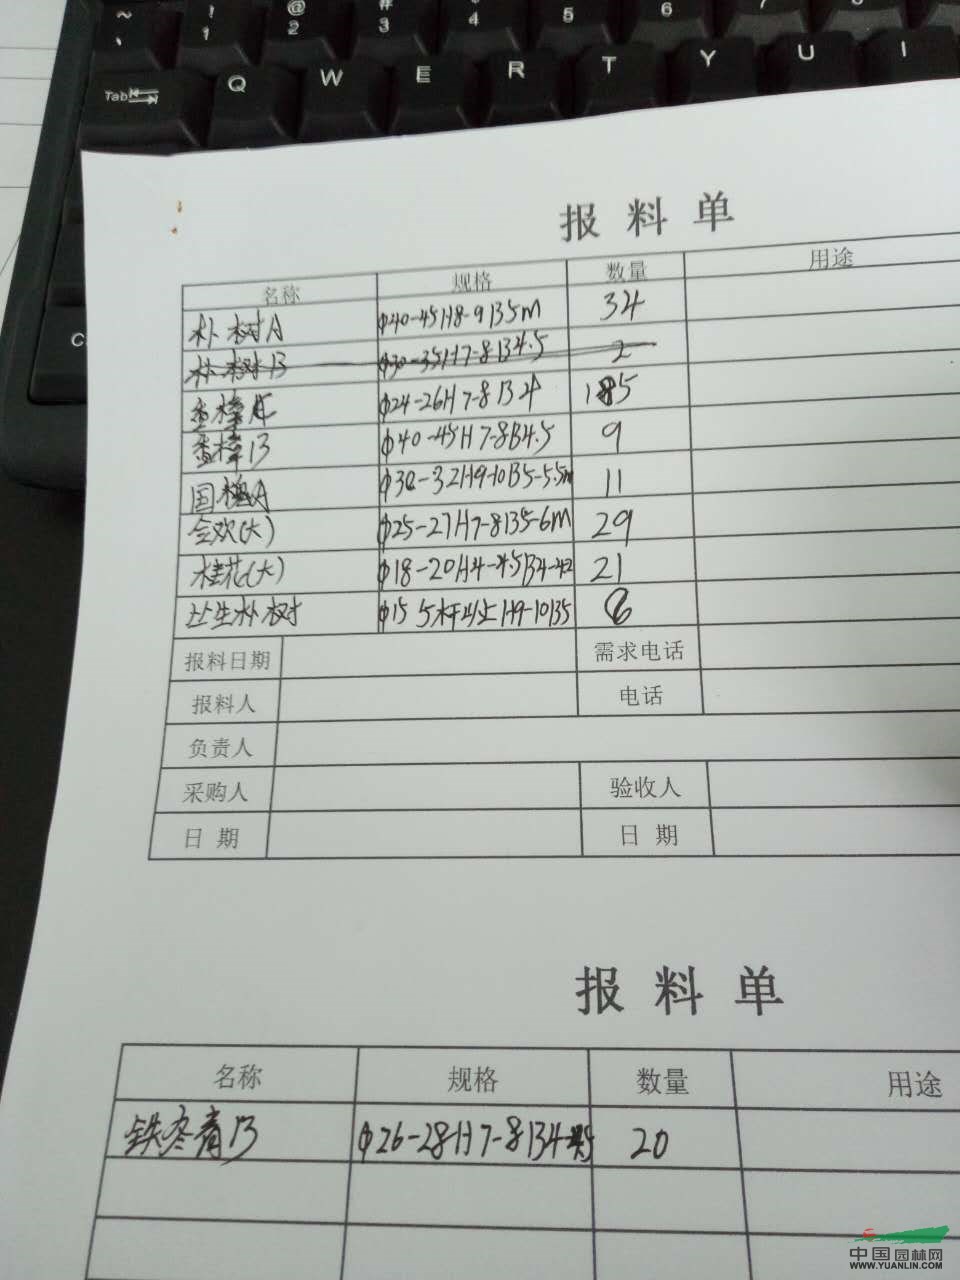 ~ ! @ # $ 5 6 7
` 1 2 3 4
Tab Q W E R T Y U I
C
报料单
名称 规格 数量 用途
朴树A φ40-45H8-9B5m 34
朴树B φ30-35H7-8B4.5 2
香樟 φ24-26H7-8B4 185
香樟B φ40-45H7-8B4.5 9
国槐A φ30-32H9-10B5-5.5m 11
合欢(大) φ25-27H7-8B5-6m 29
桂花(大) φ18-20H4-4.5B4-4.2 21
丛生朴树 φ15 5杆以上H9-10B5
报料日期 需求电话
报料人 电话
负责人
采购人 验收人
日期 日期
报料单
名称 规格 数量 用途
铁冬青B φ26-28H7-8B4 20
中国园林网
WWW.YUANLIN.COM